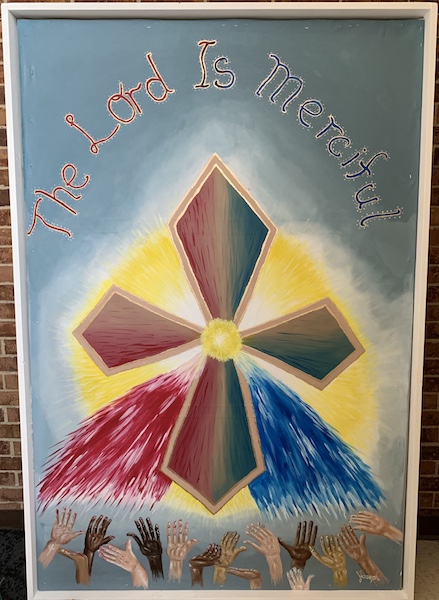 The Lord Is Merciful